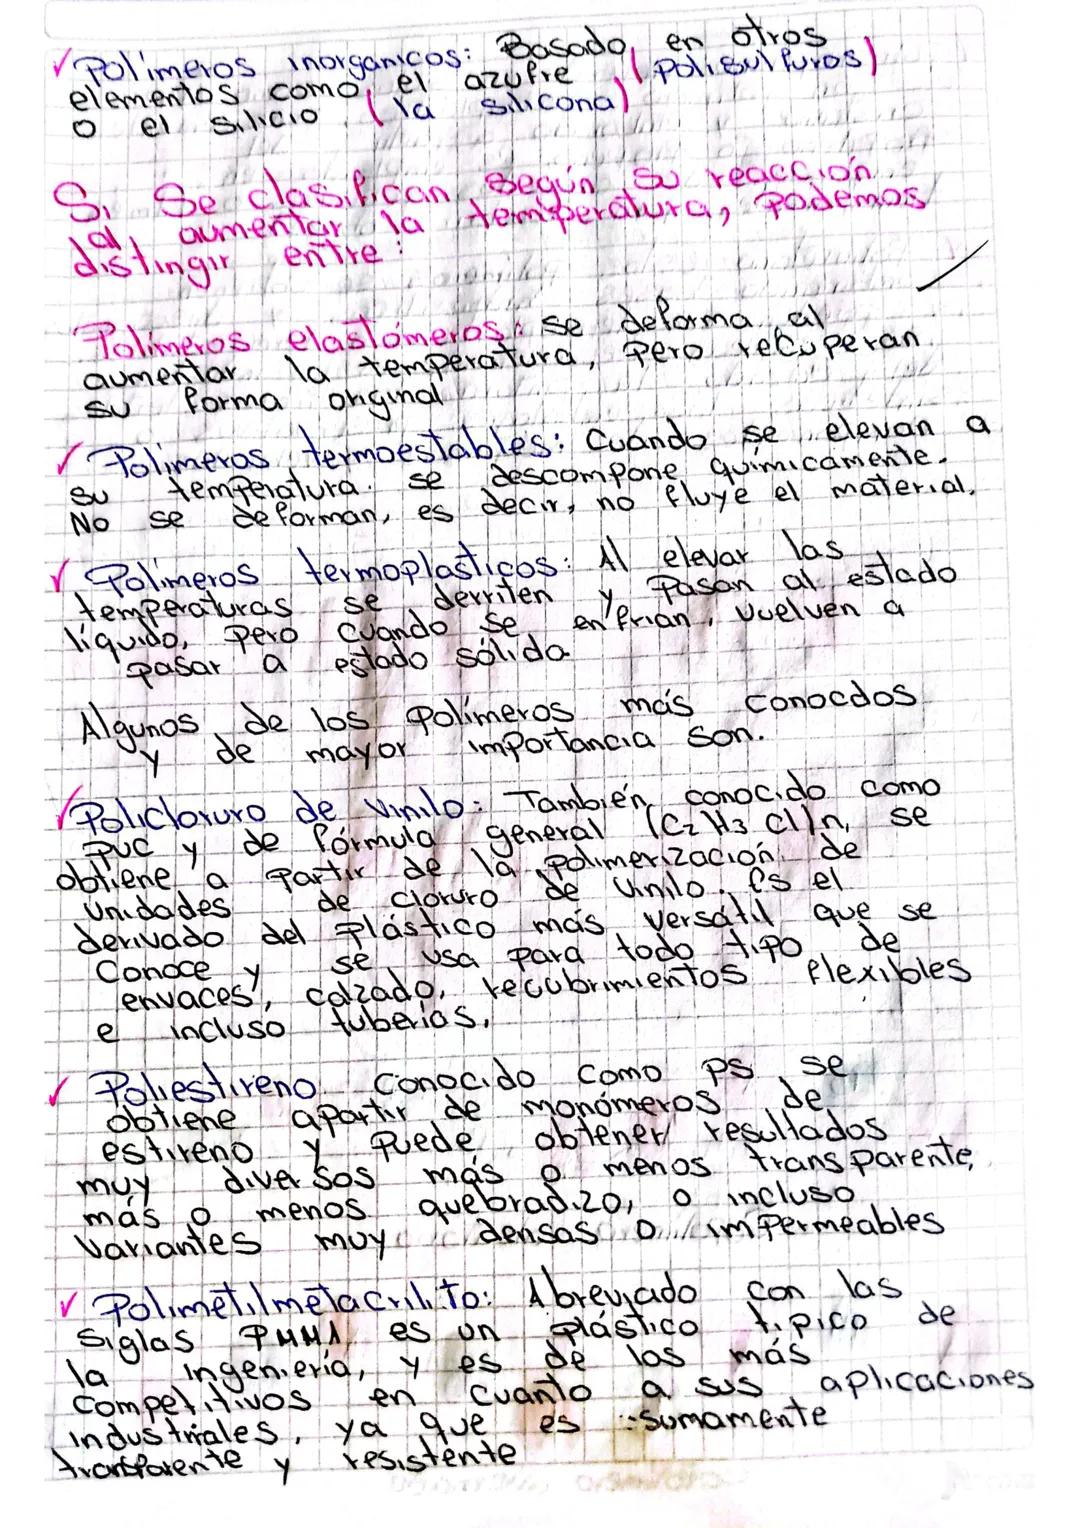 Polímeros inorganicos: Basado en otros
elementos como el azufre (polisulfuros)
o el silicio (la silicona)
Si Se clasifican según su reacción
al aumentar la temperatura, podemos
distingir entre:
Polimeros elastómeros: se deforma al
aumentar la temperatura, pero recuperan
su forma original
Polimeros termoestables: Cuando se elevan a
su temperatura. se descompone químicamente.
No se deforman, es decir, no fluye el material.
Polimeros termoplasticos: Al elevar las
temperaturas se derriten y pasan al estado
líquido, pero cuando se enfrian, vuelven a
pasar a estado sólido
Algunos de los polímeros más conocdos
y de mayor importancia son.
Policloruro de vinilo: También conocido como
PVC y de fórmula general (C2 H3 Cl)n, se
obtiene a partir de la polimerización de
unidades de cloruro de vinilo. Es el
derivado del plástico más versátil que se
conoce y se usa para todo tipo de
envaces, calzado, recubrimientos flexibles
e incluso tuberías.
Poliestireno conocido como ps se
obtiene apartir de monómeros de
estireno y puede obtener resultados
muy diversos más o menos transparente,
más o menos quebradizo, o incluso
variantes muy densas o impermeables
Polimetilmetacrilito: Abreviado con las
siglas PMMA es un plástico tipico de
la ingeniería, y es de los más
competitivos en cuanto a sus aplicaciones
industriales, ya que es sumamente
transparente y resistente